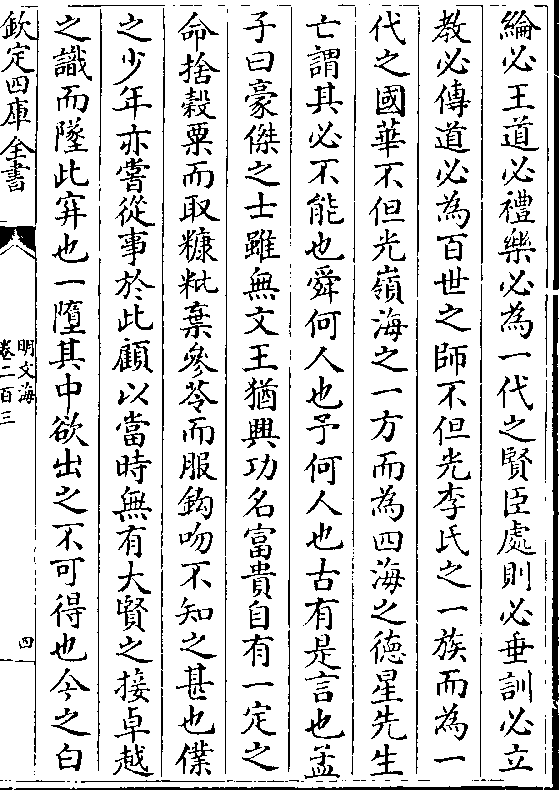 綸必王道必禮樂必為一代之賢臣處則必垂訓必立
教必傳道必為百世之師不但光李氏之一族而為一
代之國華不但光嶺海之一方而為四海之德星先生
亡謂其必不能也舜何人也予何人也古有是言也孟
子曰豪傑之士雖無文王猶興功名富貴自有一定之
命捨穀粟而取糠粃棄參苓而服鈎吻不知之甚也僕
之少年亦嘗從事於此顧以當時無有大賢之接卓越
之識而墜此穽也一墮其中欲出之不可得也今之白
欽定四庫全書
明文海
卷二百三
四